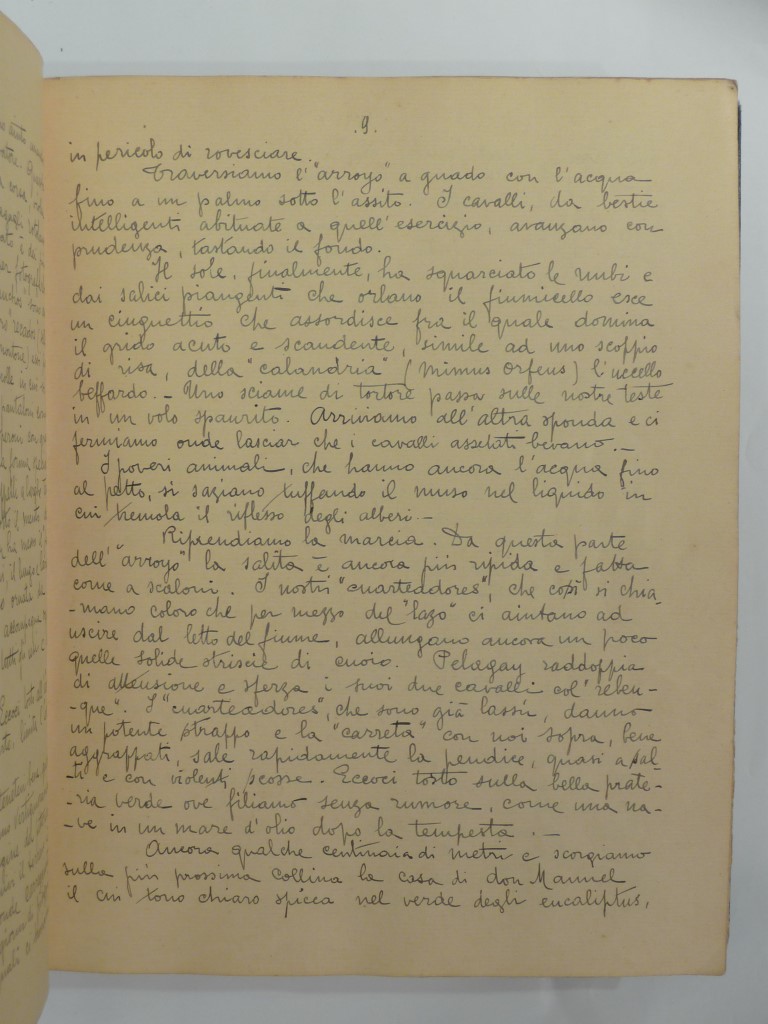 .9.
in pericolo di rovesciare.
Traversiamo l'"arroyo" a guado con l'acqua
fino a un palmo sotto l'assito. I cavalli, da bestie
intelligenti abituate a quell'esercizio, avanzano con
prudenza, tastando il fondo.
Il sole, finalmente, ha squarciato le nubi e
dai salici piangenti che orlano il fiumicello esce
un cinguettio che assordisce fra il quale domina
il grido acuto e scandente, simile ad uno scoppio
di risa, della "calandria" (Mimus Orfeus) l'uccello
beffardo. - Uno sciame di tortore passa sulle nostre teste
in un volo spaurito. Arriviamo all'altra sponda e ci
fermiamo onde lasciar che i cavalli assetati bevano. -
I poveri animali, che hanno ancora l'acqua fino
al petto, si saziano tuffando il muso nel liquido in
cui tremola il riflesso degli alberi -
Riprendiamo la marcia. Da questa parte
dell'"arroyo" la salita è ancora più ripida e fatta
come a scaloni. I nostri "cuarteadores", che così si chia-
-mano coloro che per mezzo del "lazo" ci aiutano ad
uscire dal letto del fiume, allungano ancora un poco
quelle solide striscie di cuoio. Pelagay raddoppia
di attensione e sferza i suoi due cavalli col' "reben-
-que". I "cuarteadores", che sono già lassù, danno
un potente strappo e la "carreta" con noi sopra, bene
aggrappati, sale rapidamente la pendice, quasi a sal-
-ti e con violenti scosse. Eccoci tosto sulla bella prate-
-ria verde ove filiamo senza rumore, come una na-
-ve in un mare d'olio dopo la tempesta. -
Ancora qualche centinaia di metri e scorgiamo
sulla più prossima collina la casa di don Manuel
il cui tono chiaro spicca nel verde degli eucaliptus,